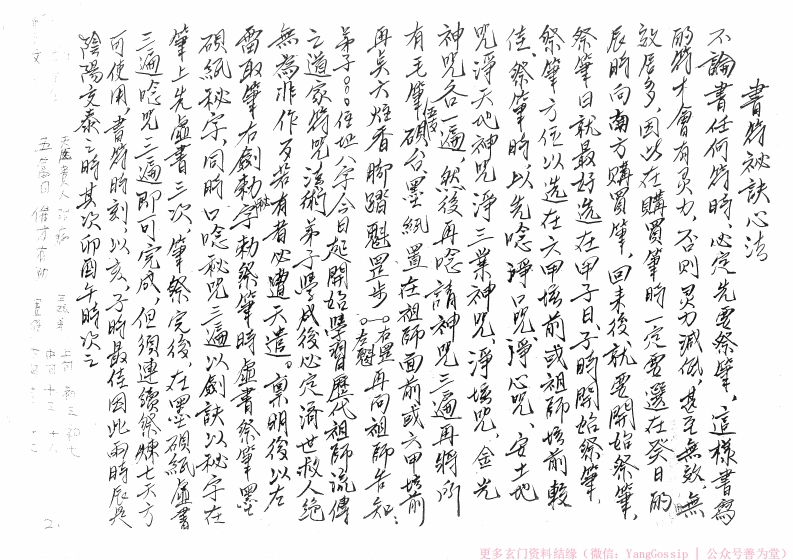 書符祕訣心法
不論書任何符時，必定先要祭筆，這樣書寫
的符才會有灵力，否則灵力減低，甚至無效，無
效居多，因此在購買筆時一定要選在癸日的
辰時向南方購買筆，回來後就要開始祭筆，
祭筆日就最好選在甲子日、子時開始祭筆，
祭筆方位以選在六甲壇前或祖師壇前較
佳。祭筆時以先唸淨口咒、淨心咒、安土地
咒淨天地神咒、淨三業神咒、淨壇咒、金光
神咒各一遍，然後再唸請神咒三遍再將所
有毛筆硯台、墨、紙置在祖師面前或六甲壇前
再点六炷香脚踏魁罡步。右罡。左魁再向祖師告知：
弟子○○○住址八字今日起開始學習歷代祖師流傳
之道家符咒法術，弟子學成後必定済世救人絶
無為非作歹若有者必遭天遣。稟明後以左
雷取筆右劍勅字勅祭筆時虛書祭筆墨
硯紙秘字，同時口唸秘咒三遍以劍訣以秘字在
筆上先虛書三次，筆祭完後，在墨硯紙虛書
三遍唸咒三遍即可完成，但須連續祭煉七天方
可使用，書符時刻，以亥、子時最佳因此兩時辰是
陰陽交泰之時其次卯酉午時次之
2
更多玄门资料结缘（微信：YangGossip | 公众号善为堂）